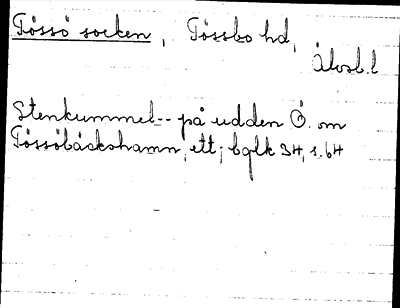 Tössö socken, Tössbo hd,
Älvsb. l
Stenkummel -- på udden Ö. om
Tössöbäckshamn, ett; bglk 34, s. 64